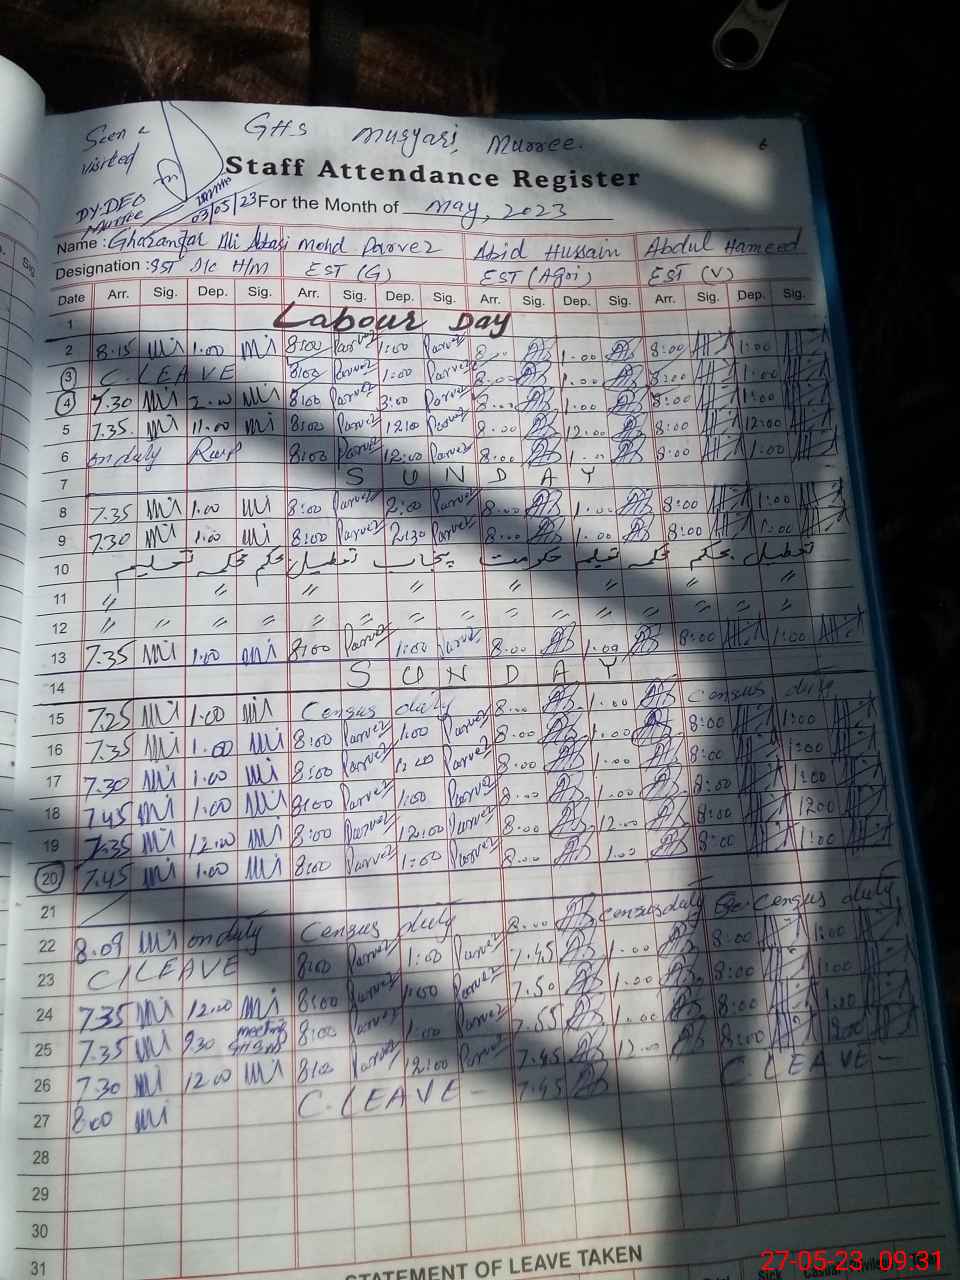 GHS Musyari, Murree. 6
Seen &
visited
Staff Attendance Register
DY.DEO
Murree
03/05/23
For the Month of May, 2023
Name : Ghazanfar Ali Abbasi Mohd Parvez Abid Hussain Abdul Hameed
Designation : SST I/c H/M EST (G) EST (Agri) EST (V)
Date Arr. Sig. Dep. Sig. Arr. Sig. Dep. Sig. Arr. Sig. Dep. Sig. Arr. Sig. Dep. Sig.
1 Labour Day
2 8.15 1.00 8:00 Parvez 1:00 Parvez 8.00 1.00 8:00 1:00
3 C. LEAVE 8:00 Parvez 1:00 Parvez 8.00 1.00 8:00 1:00
4 7.30 2.00 8:00 Parvez 3:00 Parvez 8.00 1.00 8:00 1:00
5 7.35 11.00 8:00 Parvez 12:00 Parvez 8.00 12.00 8:00 12:00
6 on duty 8:00 Parvez 12:00 Parvez 8.00 1.00 8:00 1:00
7 SUNDAY
8 7.35 1.00 8:00 Parvez 2:00 Parvez 8.00 1.00 8:00 1:00
9 7.30 1.00 8:00 Parvez 2:30 Parvez 8.00 1.00 8:00 1:00
10 تعطیل بحکم محکمہ تعلیم حکومت پنجاب تعطیل بحکم محکمہ تعلیم
11 〃 〃 〃 〃 〃 〃 〃
12 〃 〃 〃 〃 〃 〃 〃 〃 〃 〃 〃 〃 〃 〃
13 7.35 1.00 8:00 Parvez 1:00 Parvez 8.00 1.00 8:00 1:00
14 SUNDAY
15 7.25 1.00 Census duty 8.00 1.00 Census duty
16 7.35 1.00 8:00 Parvez 1:00 Parvez 8.00 1.00 8:00 1:00
17 7.30 1.00 8:00 Parvez Parvez 8.00 1.00 8:00 1:00
18 7.45 1.00 8:00 Parvez 1:00 Parvez 8.00 1.00 8:00 1:00
19 7.35 12.00 8:00 Parvez 12:00 Parvez 8.00 12.00 8:00 12:00
20 7.45 1.00 8:00 Parvez 1:00 Parvez 8.00 1.00 8:00 1:00
21
22 8.09 on duty Census duty 8.00 Census duty Census duty
23 C/LEAVE 8:00 Parvez 1:00 Parvez 7.45 1.00 8:00 1:00
24 7.35 12.00 8:00 Parvez 1:00 Parvez 7.50 1.00 8:00 1:00
25 7.35 9.30 meeting 8:00 Parvez 1:00 Parvez 7.55 1.00 8:00 1:00
26 7.30 12.00 8:00 Parvez 12:00 Parvez 7.45 12.00 8:00
27 8.00 C. LEAVE - 7.45 C. LEAVE -
28
29
30
31
STATEMENT OF LEAVE TAKEN
Sick
27-05-23 09:31